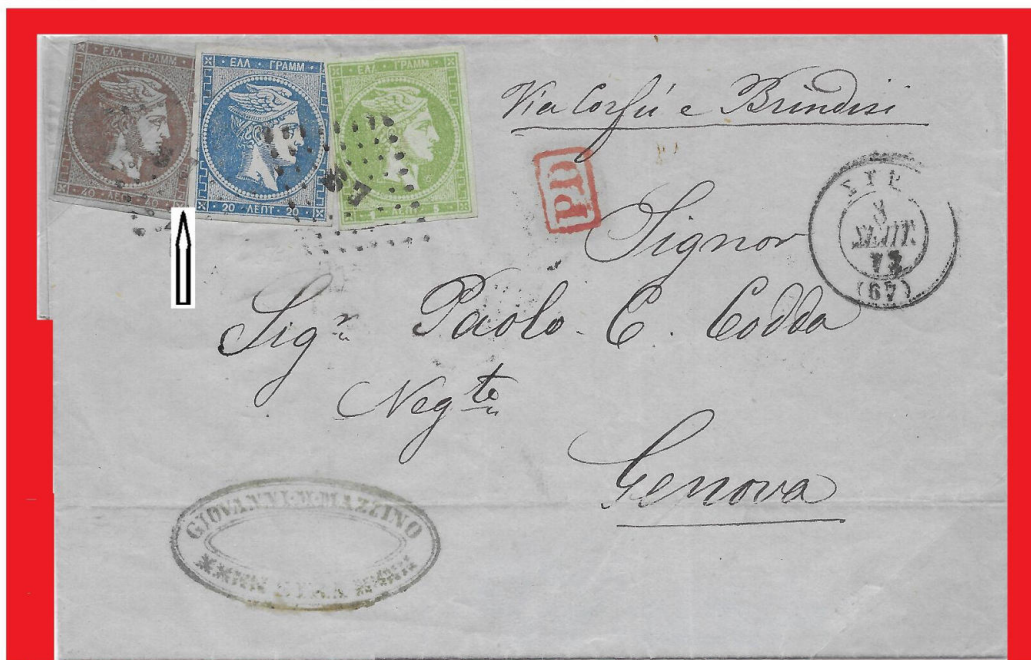 ΕΛΛ ΓΡΑΜΜ
40 ΛΕΠΤ 40
ΕΛΛ ΓΡΑΜΜ
20 ΛΕΠΤ 20
ΕΛΛ ΓΡΑΜΜ
5 ΛΕΠΤ 5
67
Via Corfú e Brindisi
PD
ΣΕΠΤ.
73
(67)
Signor
Sigr Paolo C. Codda
Negte
Genova
GIOVANNI MAZZINO
SYRA